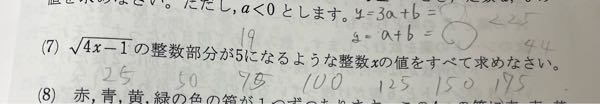 ただし，a<0とします。 y=3a+b=
y=a+b=
<25
19
44
(7) √4x-1の整数部分が5になるような整数xの値をすべて求めなさい。
25 50 75 100 125 150 175
(8) 赤，青，黄，緑の色の箱が1つずつ